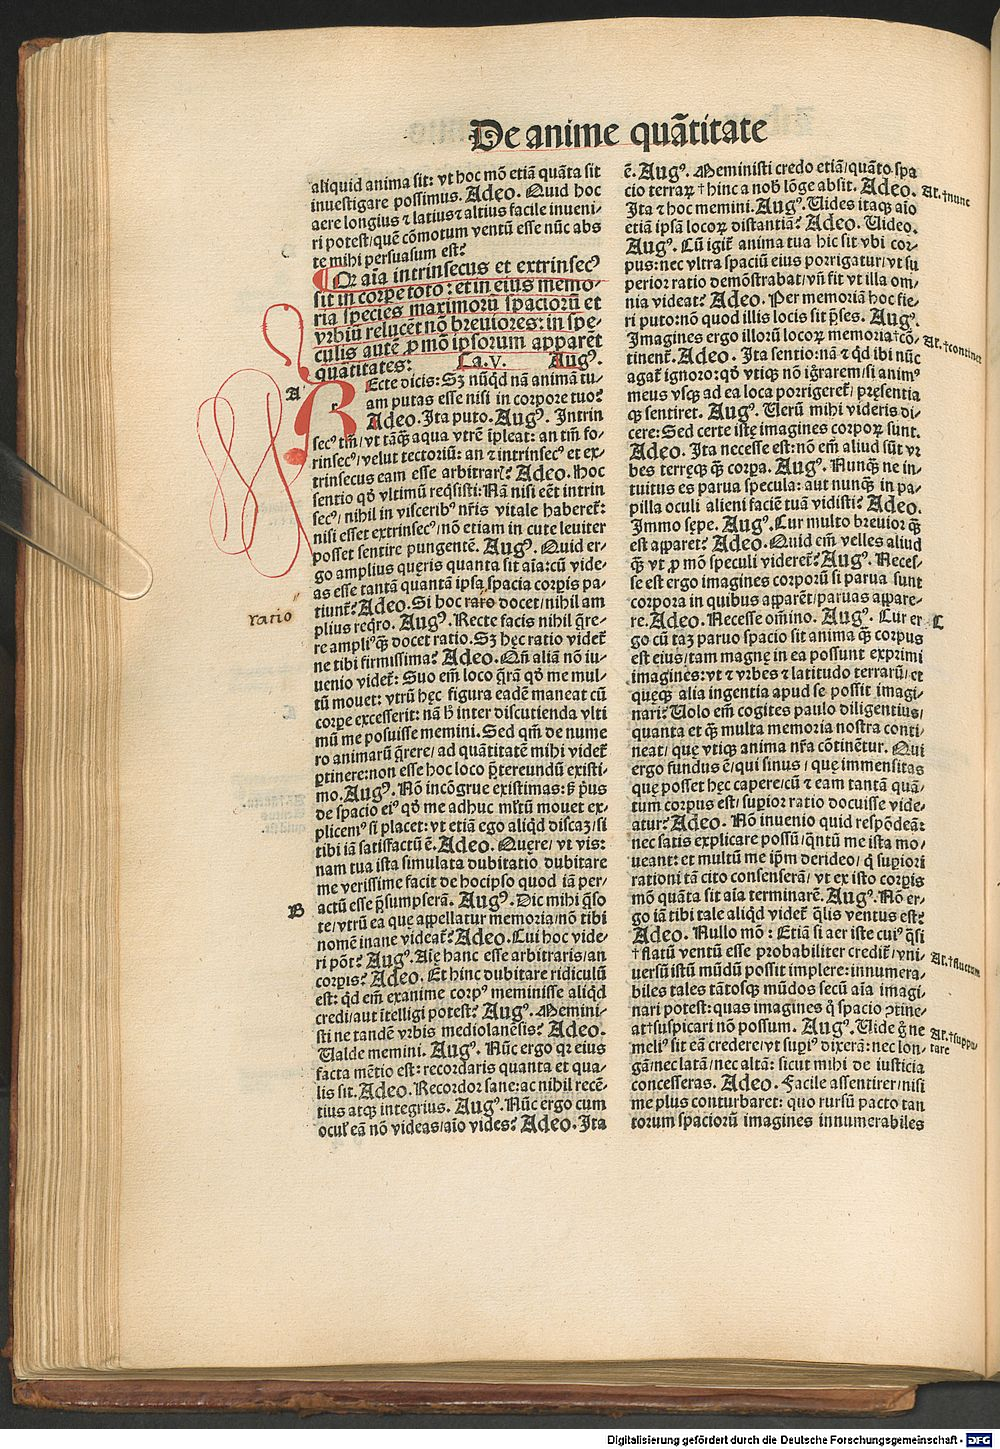 De anime quãtitate
aliquid anima sit: vt hoc mõ etiã quãta sit
inuestigare possimus. Adeo. Quid hoc
aere longius ⁊ latius ⁊ altius facile inueni-
ri potest/quẽ cõmotum ventũ esse nũc abs
te mihi persuasum est?
¶Qr aĩa intrinsecus et extrinsecꝰ
sit in corpe toto: et in eius memo-
ria species maximorũ spaciorũ et
vrbiũ relucẽt nõ breuiores: in spe-
culis autẽ ꝓ mõ ipsorum apparẽt
quãtitates: Ca.v. Augꝰ.
A
REcte dicis: Sꝫ nũqd nã animã tu-
am putas esse nisi in corpore tuo?
Adeo. Ita puto. Augꝰ. Intrin
secꝰ tm̃/vt tãq̃ aqua vtrẽ ĩpleat: an tm̃ fo-
rinsecꝰ/velut tectoriũ: an ⁊ intrinsecꝰ et ex-
trinsecus eam esse arbitrar̃? Adeo. Hoc
sentio qð vltimũ reqsisti: Nã nisi eẽt intrin
secꝰ/nihil in visceribꝰ nr̃is vitale haberet̃:
nisi esset extrinsecꝰ/nõ etiam in cute leuiter
posset sentire pungentẽ. Augꝰ. Quid er-
go amplius queris quanta sit aĩa: cũ vide-
as esse tantã quantã ipsa spacia corpis pa-
tiunt̃? Adeo. Si hoc raro docet/nihil am
ratio
plius reqro. Augꝰ. Recte facis nihil q̃re-
re ampliꝰ q̃ docet ratio. Sꝫ hęc ratio videt̃
ne tibi firmissima? Adeo. Qñ aliã nõ in-
uenio videt̃: Suo em̃ loco q̃rã qð me mul-
tũ mouet: vtrũ hęc figura eadẽ maneat cũ
corpe excesserit: nã h̃ inter discutienda vlti
mũ me posuisse memini. Sed qm̃ de nume
ro animarũ q̃rere/ad quãtitatẽ mihi videt̃
ptinere: non esse hoc loco p̃tereundũ existi-
mo. Augꝰ. Nõ incõgrue existimas: sꝫ p̃us
de spacio eiꝰ qð me adhuc ml̃tũ mouet ex-
plicemꝰ si placet: vt etiã ego aliqd discaꝫ/si
tibi iã satisfactũ ẽ. Adeo. Quęre/vt vis:
nam tua ista simulata dubitatio dubitare
me verissime facit de hocipso quod iã per-
B
actũ esse p̃sumpserã. Augꝰ. Dic mihi q̃so
te/vtrũ ea que appellatur memoria/nõ tibi
nomẽ inane videat̃? Adeo. Cui hoc vide-
ri põt? Augꝰ. Aię hanc esse arbitraris/an
corpis? Adeo. Et hinc dubitare ridiculũ
est: qd em̃ exanime corpꝰ meminisse aliqd
credi/aut ĩtelligi potest? Augꝰ. Memini-
sti ne tandẽ vrbis mediolanẽsis? Adeo.
Ualde memini. Augꝰ. Nũc ergo qr eius
facta mẽtio est: recordaris quanta et qua-
lis sit. Adeo. Recordor sane: ac nihil recẽ-
tius atqꝫ integrius. Augꝰ. Nũc ergo cum
ocul̃ eã nõ videas/aĩo vides? Adeo. Ita
ẽ. Augꝰ. Meministi credo etiã/quãto spa
cio terraꝝ † hinc a nob̃ lõge absit. Adeo.
Al. †nunc
Ita ⁊ hoc memini. Augꝰ. Uides itaqꝫ aĩo
etiã ipsã locoꝝ distantiã? Adeo. Uideo.
Augꝰ. Cũ igit̃ anima tua hic sit vbi cor-
pus: nec vltra spaciũ eius porrigatur/vt su
perior ratio demõstrabat/vñ fit vt illa om-
nia videat? Adeo. Per memoriã hoc fie-
ri puto: nõ quod illis locis sit p̃ses. Augꝰ.
Imagines ergo illorũ locoꝝ memoria †cõ-
Al. †continet
tinent̃. Adeo. Ita sentio: nã ⁊ qd ibi nũc
agat̃ ignoro: qð vtiqꝫ nõ ig̃rarem/si animꝰ
meus vsqꝫ ad ea loca porrigeret̃/pręsentia
qꝫ sentiret. Augꝰ. Uerũ mihi videris di-
cere: Sed certe istę imagines corpoꝝ sunt.
Adeo. Ita necesse est: nõ em̃ aliud sũt vr
bes terręqꝫ q̃ corpa. Augꝰ. Nunq̃ ne in-
tuitus es parua specula: aut nunq̃ in pa-
pilla oculi alieni faciẽ tuã vidisti? Adeo.
Immo sępe. Augꝰ. Cur multo breuior q̃
est apparet? Adeo. Quid em̃ velles aliud
q̃ vt ꝓ mõ speculi videret̃? Augꝰ. Neces-
se est ergo imagines corporũ si parua sunt
corpora in quibus apparẽt/paruas appare-
re. Adeo. Necesse om̃ino. Augꝰ. Cur er
C
go cũ taꝫ paruo spacio sit anima q̃ corpus
est eius/tam magnę in ea possunt exprimi
imagines: vt ⁊ vrbes ⁊ latitudo terrarũ/et
quęqꝫ alia ingentia apud se possit imagi-
nari? Uolo em̃ cogites paulo diligentius/
quanta et q̃ multa memoria nostra conti-
neat/quę vtiqꝫ anima nr̃a cõtinẽtur. Qui
ergo fundus ẽ/qui sinus/quę immensitas
quę posset hęc capere/cũ ⁊ eam tantã quã-
tum corpus est/supior ratio docuisse vide-
atur? Adeo. Nõ inuenio quid respõdeã:
nec satis explicare possũ/qñtũ me ista mo-
ueant: et multũ me ip̃m derideo/q̃ supiori
rationi tã cito consenserã/vt ex isto corpis
mõ quãta sit aĩa terminarẽ. Augꝰ. Nõ er-
go iã tibi tale aliqd videt̃ q̃lis ventus est?
Adeo. Nullo mõ: Etiã si aer iste cuiꝰ q̃si
†flatũ ventũ esse probabiliter credit̃/vni-
Al. †fluctum
uersũ istũ mũdũ possit implere: innumera-
biles tales tãtosqꝫ mũdos secũ aĩa imagi-
nari potest: quas imagines q̃ spacio ꝯtine-
at †suspicari nõ possum. Augꝰ. Uide g̃ ne
Al. †suppu-
tare
meliꝰ sit eã credere/vt supiꝰ dixerã: nec lon-
gã/nec latã/nec altã: sicut mihi de iusticia
concesseras. Adeo. Facile assentirer/nisi
me plus conturbaret: quo rursũ pacto tan
torum spaciorũ imagines innumerabiles
Digitalisierung gefördert durch die Deutsche Forschungsgemeinschaft - DFG